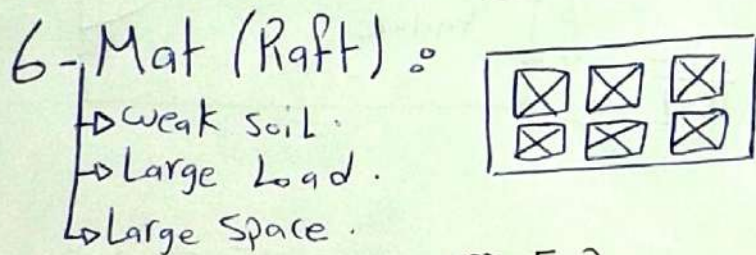 6- Mat (Raft) :
weak soil.
Large Load.
Large Space.